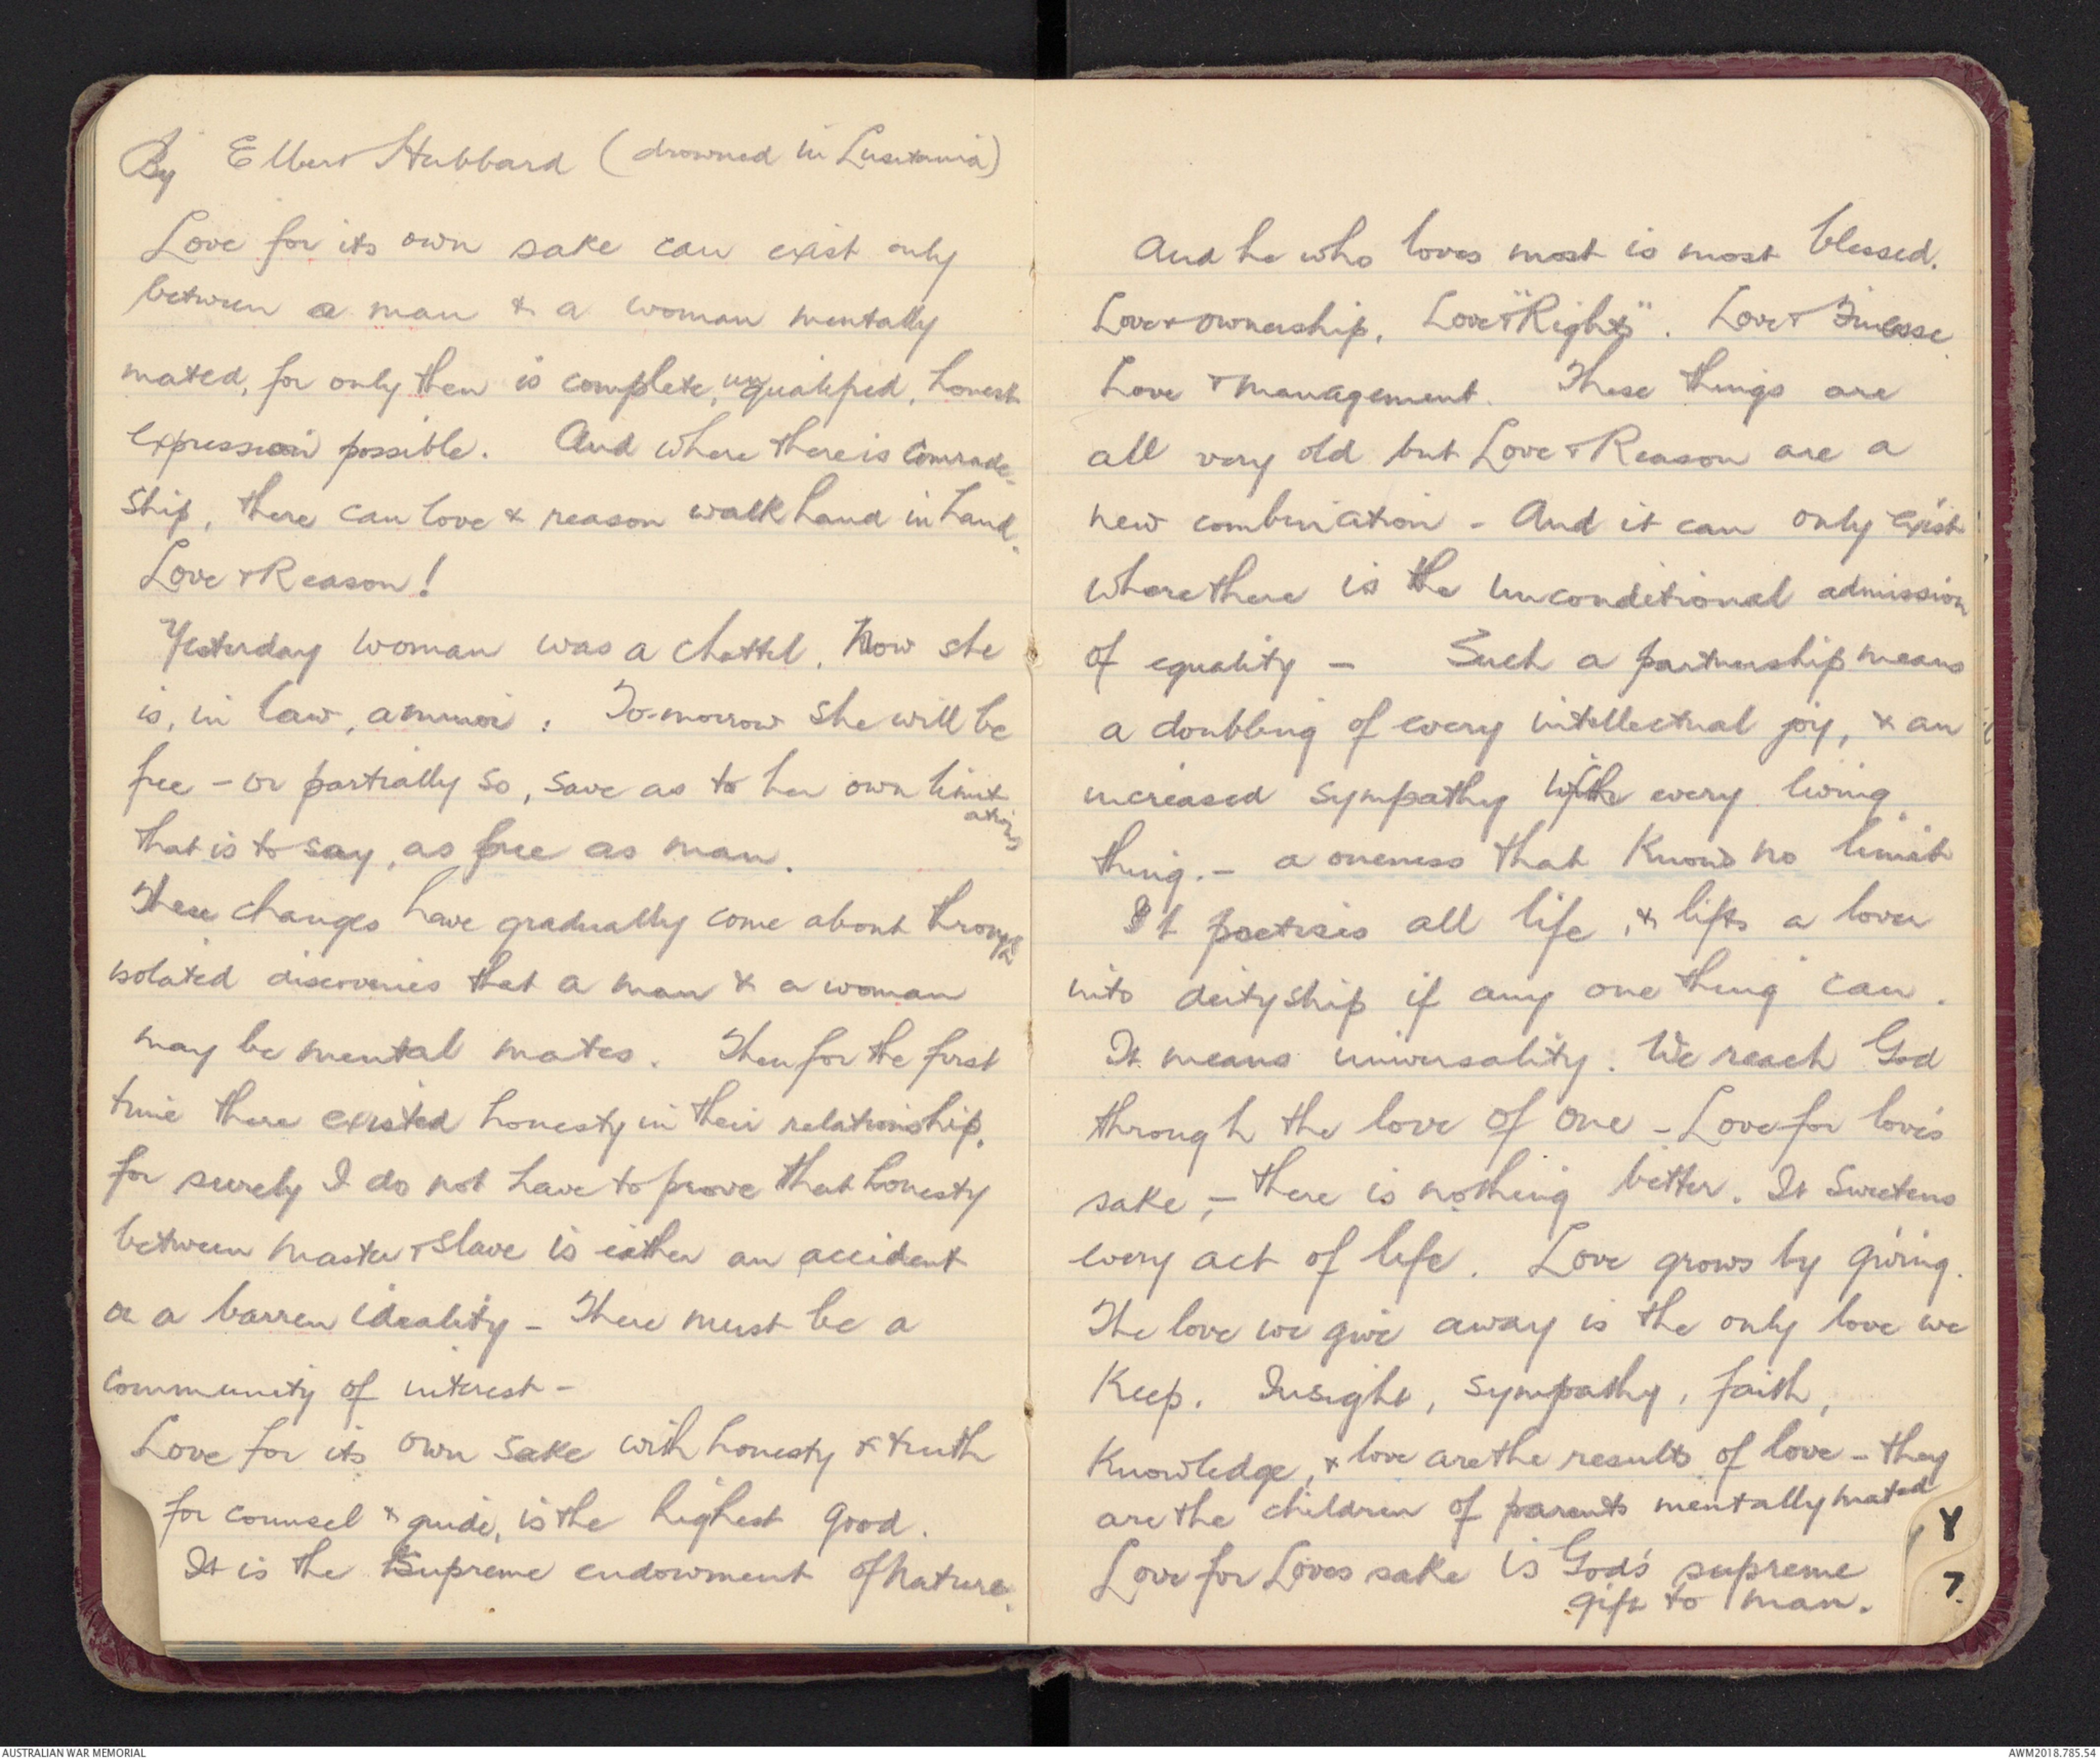 By Elbert Hubbard (drowned in Lusitania)
Love for its own sake can exist only
between a man & a woman mentally
mated, for only then is complete, unqualified, honest
expression possible. And where there is Comrade-
ship, there can love & reason walk hand in hand.
Love & Reason!
Yesterday woman was a chattel. Now she
is, in law, a minor. To-morrow she will be
free - or partially so, save as to her own limit
ations
that is to say, as free as man.
These changes have gradually come about through
isolated discoveries that a man & a woman
may be mental mates. Then for the first
time there existed honesty in their relationship,
for surely I do not have to prove that honesty
between master & slave is either an accident
or a barren ideality - There must be a
community of interest -
Love for its own sake with honesty & truth
for counsel & guide, is the highest good.
It is the Supreme endowment of Nature.
And he who loves most is most blessed.
Love & ownership. Love & "Rights". Love & Finesse
Love & management. These things are
all very old but Love & Reason are a
new combination - And it can only exist
where there is the unconditional admission
of equality - Such a partnership means
a doubling of every intellectual joy, & an
increased sympathy with every living
thing. - a oneness that knows no limit
It poetises all life, & lifts a lover
into deityship if any one thing can.
It means universality. We reach God
through the love of one - Love for love's
sake, - there is nothing better. It sweetens
every act of life. Love grows by giving.
The love we give away is the only love we
Keep. Insight, sympathy, faith,
Knowledge, & love are the results of love - they
are the children of parents mentally mated
Love for Loves sake is God's supreme
gift to man.
Y
7
AUSTRALIAN WAR MEMORIAL
AWM2018.785.54